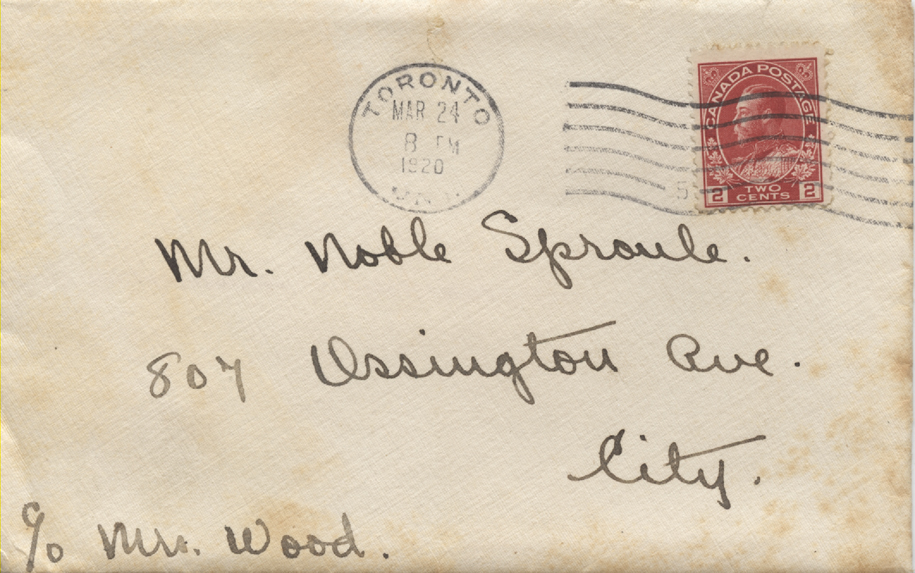 TORONTO
MAR 24
8 PM
1920
ONT.
CANADA POSTAGE
2 TWO CENTS 2
5
Mr. Noble Sproule.
807 Ossington Ave.
City.
c/o Mrs. Wood.